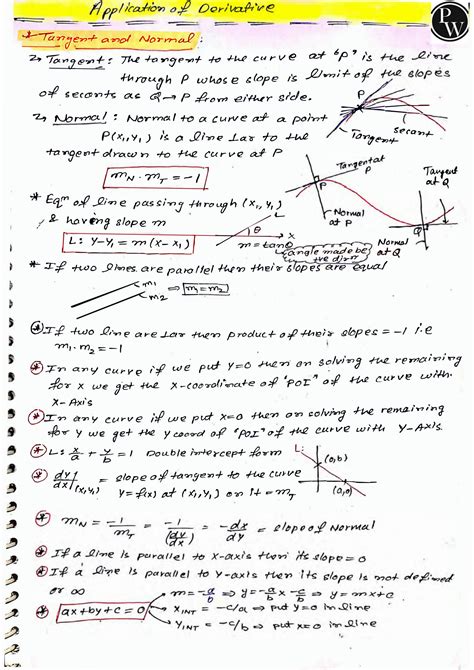 Application of Derivative
P
W
* Tangent and Normal:
→ Tangent: The tangent to the curve at "P" is the line
through P whose slope is limit of the slopes
of secants as Q→P from either side.
P
secant
Tangent
→ Normal: Normal to a curve at a point
P(x₁,y₁) is a line ⊥ar to the
tangent drawn to the curve at P
m_N · m_T = -1
Tangent at P
P
Tangent at Q
Normal at P
Q
Normal at Q
* Eqⁿ of line passing through (x₁, y₁)
& having slope m
L: y-y₁ = m(x-x₁)
L
θ
x
m = tanθ
angle made by +ve dirⁿ
* If two lines are parallel then their slopes are equal
m₁
m₂
⇒ m₁=m₂
* If two line are ⊥ar then product of their slopes = -1 i.e
m₁·m₂ = -1
* In any curve if we put y=0 then on solving the remaining
for x we get the x-coordinate of "POI" of the curve with
x-Axis
* In any curve if we put x=0 then on solving the remaining
for y we get the y coord of "POI" of the curve with y-Axis
* L: x/a + y/b = 1 Double intercept form
L:
(0,b)
(a,0)
* dy/dx](x₁,y₁) = slope of tangent to the curve
y=f(x) at (x₁,y₁) on it = m_T
* m_N = -1/m_T = -1/(dy/dx) = -dx/dy = slope of Normal
* If a line is parallel to x-axis then its slope = 0
* If a line is parallel to y-axis then its slope is not defined
or ∞
* ax+by+c=0
m = -a/b ⇒ y = -a/b x - c/b ⇒ y = mx+c
x_INT = -c/a → put y=0 in line
y_INT = -c/b ⇒ put x=0 in line